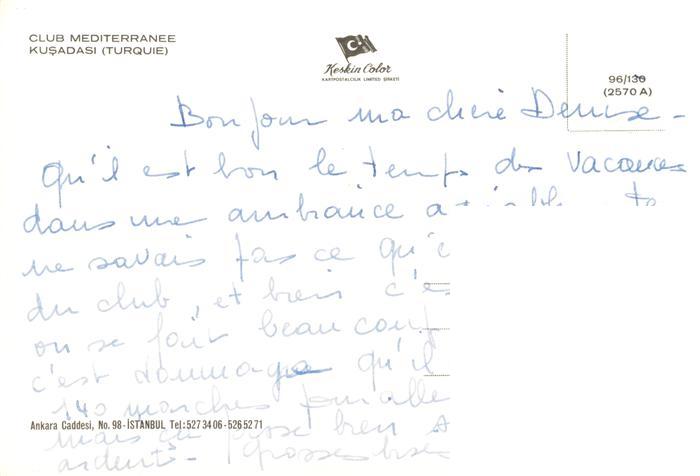 CLUB MEDITERRANEE
KUŞADASI (TURQUIE)
Keskin Color
KARTPOSTALCILIK LIMITED ŞIRKETI
96/130
(2570 A)
Bonjour ma chère Denise -
qu'il est bon le temps des vacances
dans une ambiance
ne savais pas ce qu'
du club, et bien c'es
on se fait beaucoup
c'est dommage qu'il
140 marches pour alle
Ankara Caddesi, No. 98 - İSTANBUL Tel: 527 34 06 - 526 52 71
mais ça passe bien
ardente - grosses bises